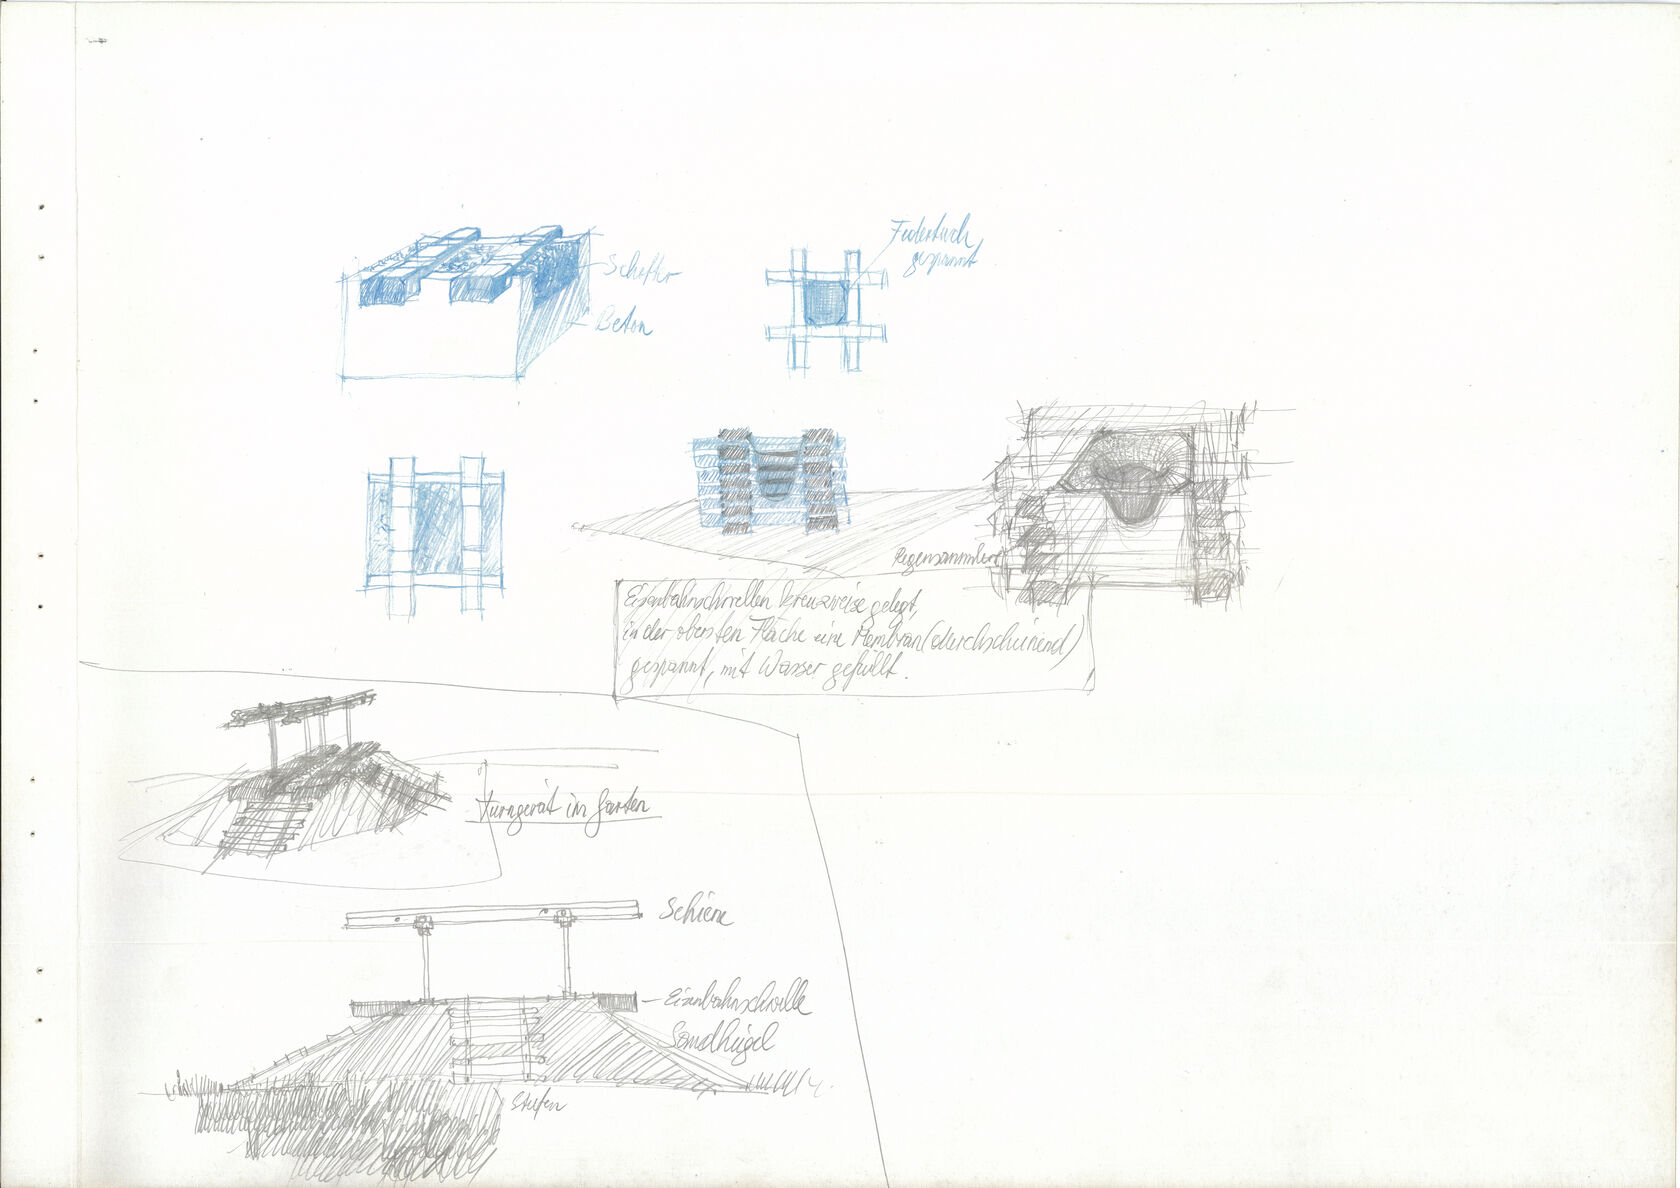 Schotter
Beton
Federtuch
gespannt
Regensammler
Eisenbahnschwellen kreuzweise gelegt,
in der obersten Fläche eine Membran (durchscheinend)
gespannt, mit Wasser gefüllt.
Turngerät im Garten
Schiene
Eisenbahnschwelle
Sandhügel
Stufen